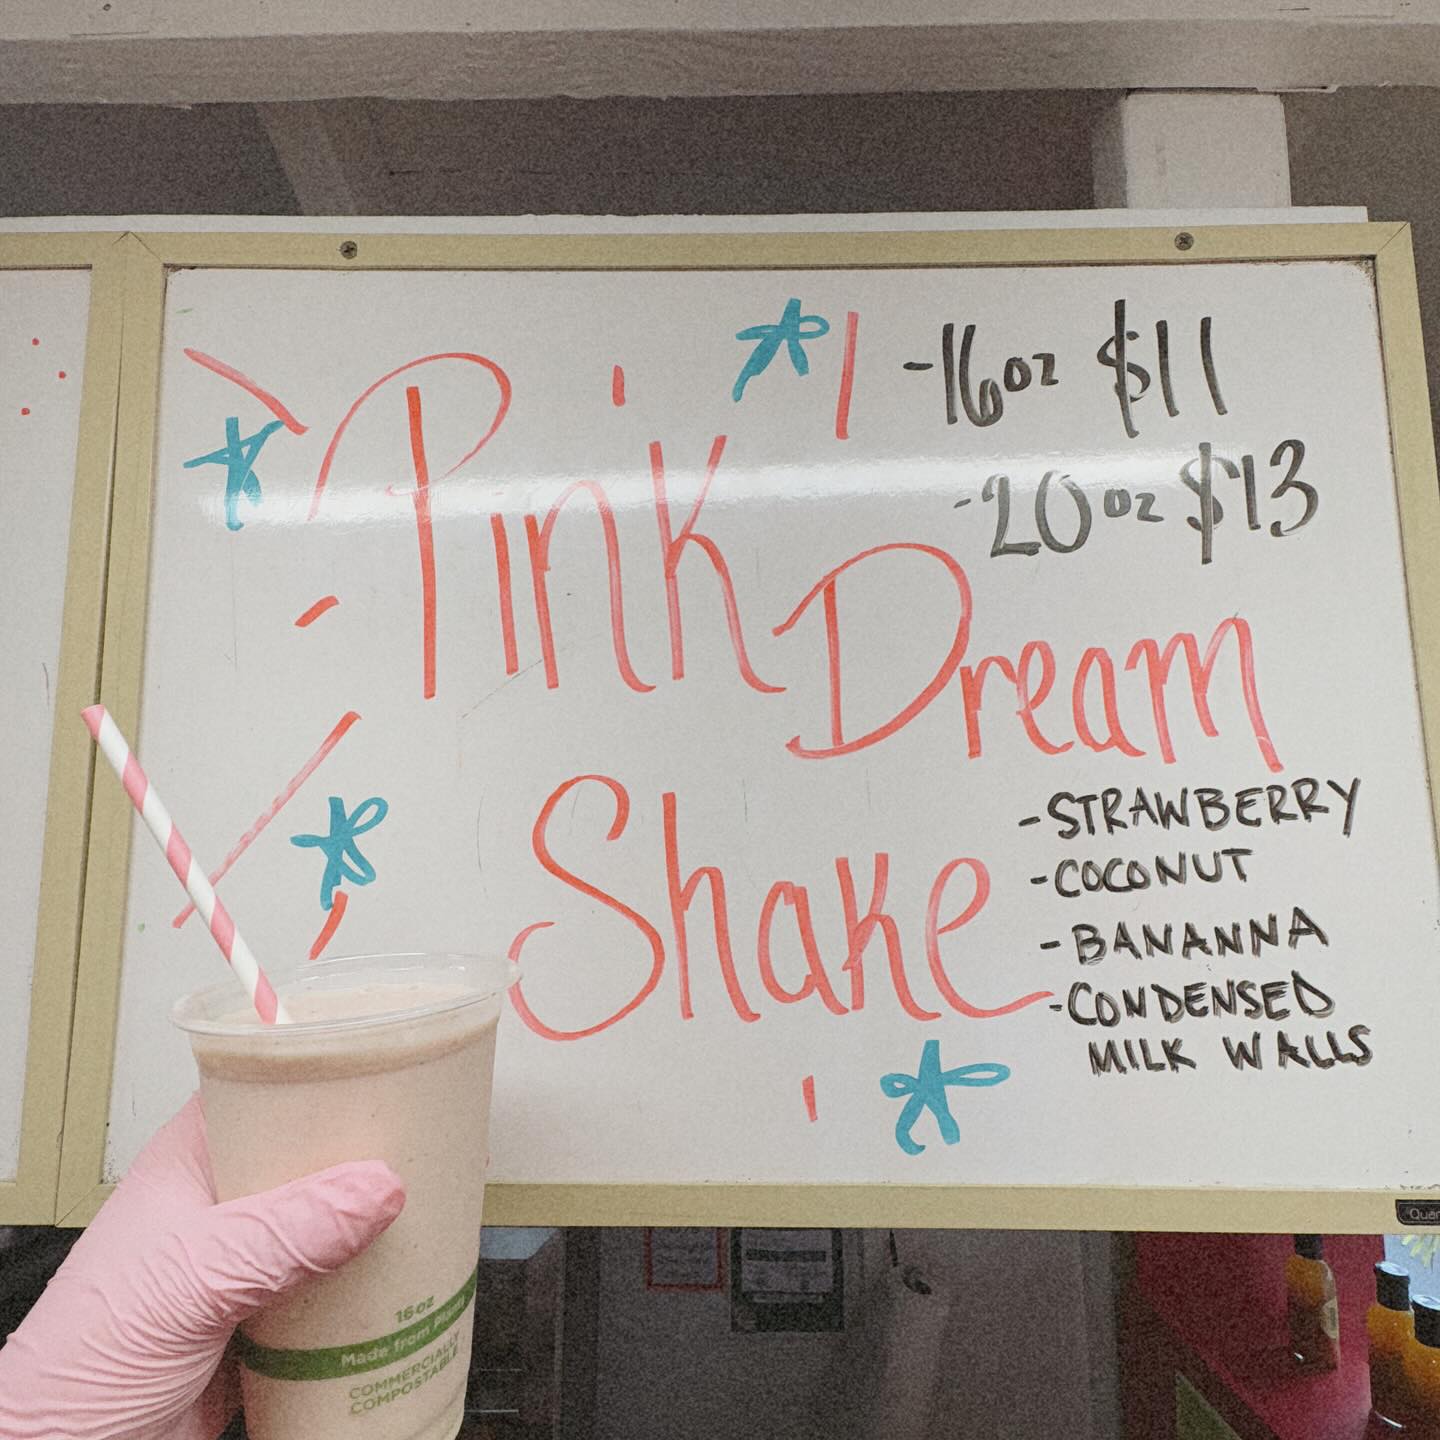 -16oz $11
-20oz $13
Pink
Dream
Shake
-STRAWBERRY
-COCONUT
-BANANNA
-CONDENSED
MILK WALLS
16oz
Made from Plants
COMMERCIALLY
COMPOSTABLE